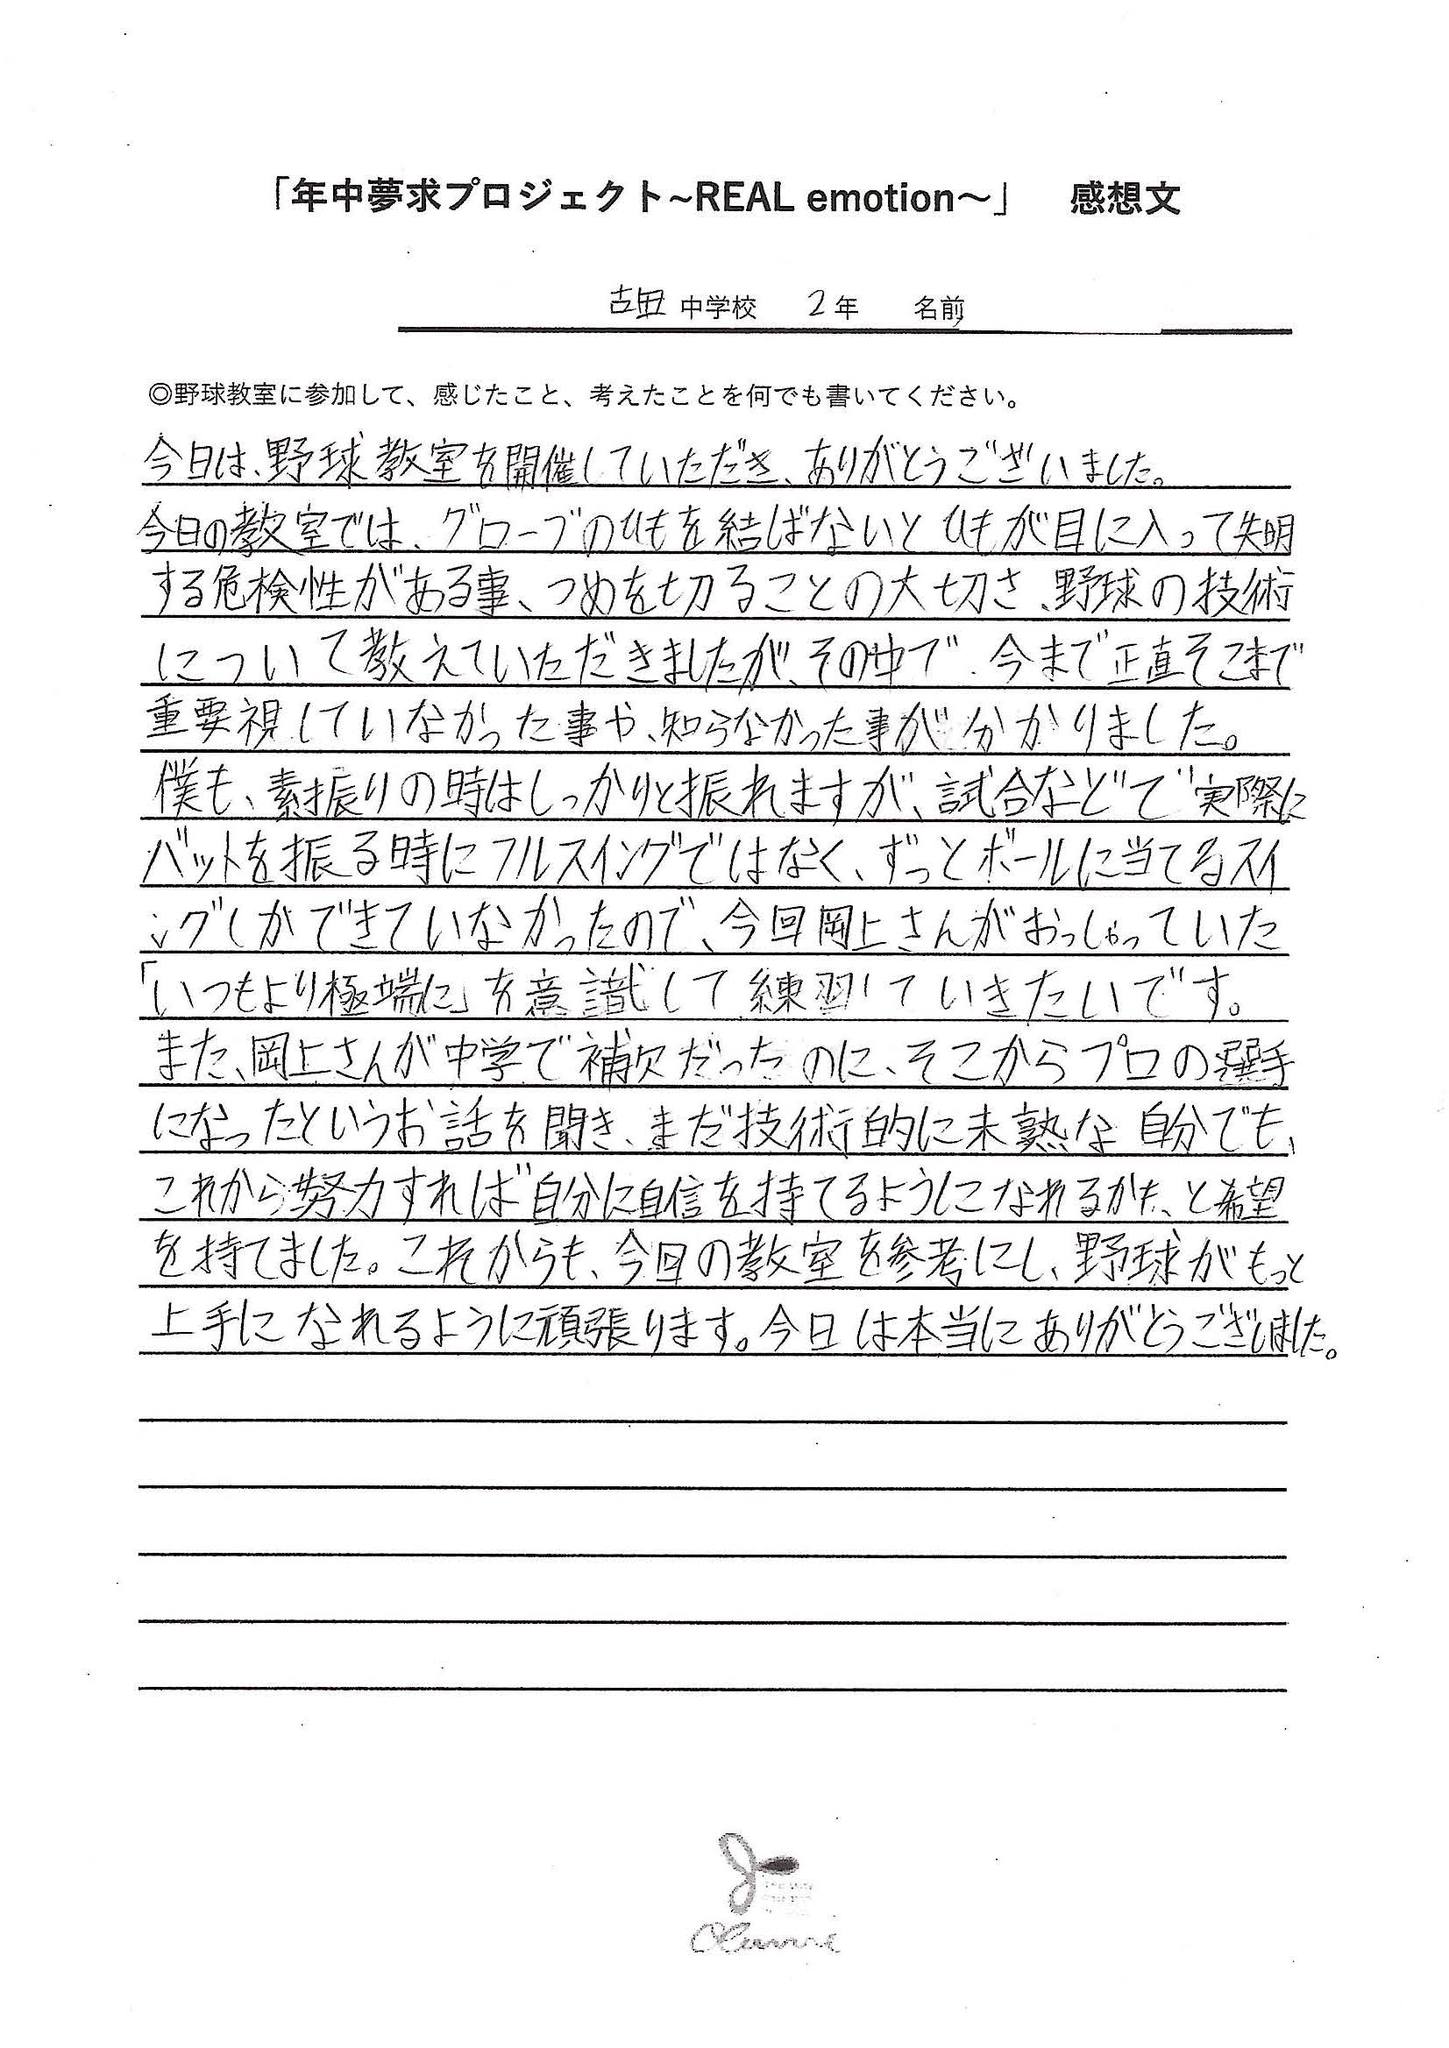 「年中夢求プロジェクト~REAL emotion～」　感想文
吉田 中学校　2年　名前
◎野球教室に参加して、感じたこと、考えたことを何でも書いてください。
今日は、野球教室を開催していただき、ありがとうございました。
今日の教室では、グローブのひもを結ばないとひもが目に入って失明
する危険性がある事、つめを切ることの大切さ、野球の技術
について教えていただきましたが、その中で、今まで正直そこまで
重要視していなかった事や、知らなかった事が分かりました。
僕も、素振りの時はしっかりと振れますが、試合などで実際に
バットを振る時にフルスイングではなく、ずっとボールに当てるスイ
ングしかできていなかったので、今回岡上さんがおっしゃっていた
「いつもより極端に」を意識して練習していきたいです。
また、岡上さんが中学で補欠だったのに、そこからプロの選手
になったというお話を聞き、まだ技術的に未熟な自分でも、
これから努力すれば自分に自信を持てるようになれるかも、と希望
を持てました。これからも、今回の教室を参考にし、野球がもっと
上手になれるように頑張ります。今日は本当にありがとうございました。